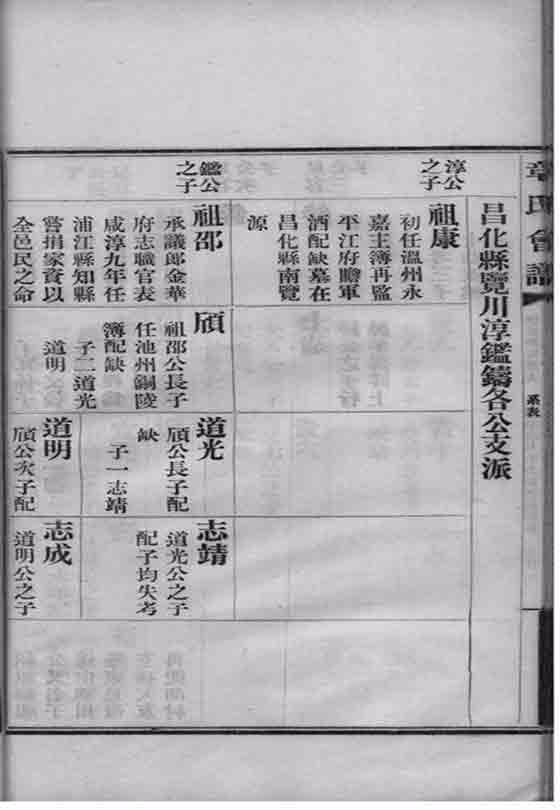 章氏會譜
系表
昌化縣覽川淳鑑鑄各公支派
淳公
之子
祖康
初任溫州永
嘉主簿再監
平江府贍軍
酒配缺墓在
昌化縣南覽
源
鑑公
之子
祖邵
承議郎金華
府志職官表
咸淳九年任
浦江縣知縣
嘗捐家資以
全邑民之命
頎
祖邵公長子
任池州銅陵
簿配缺
子二道光
道明
道光
頎公長子配
缺
子一志靖
道明
頎公次子配
志靖
道光公之子
配子均失考
志成
道明公之子